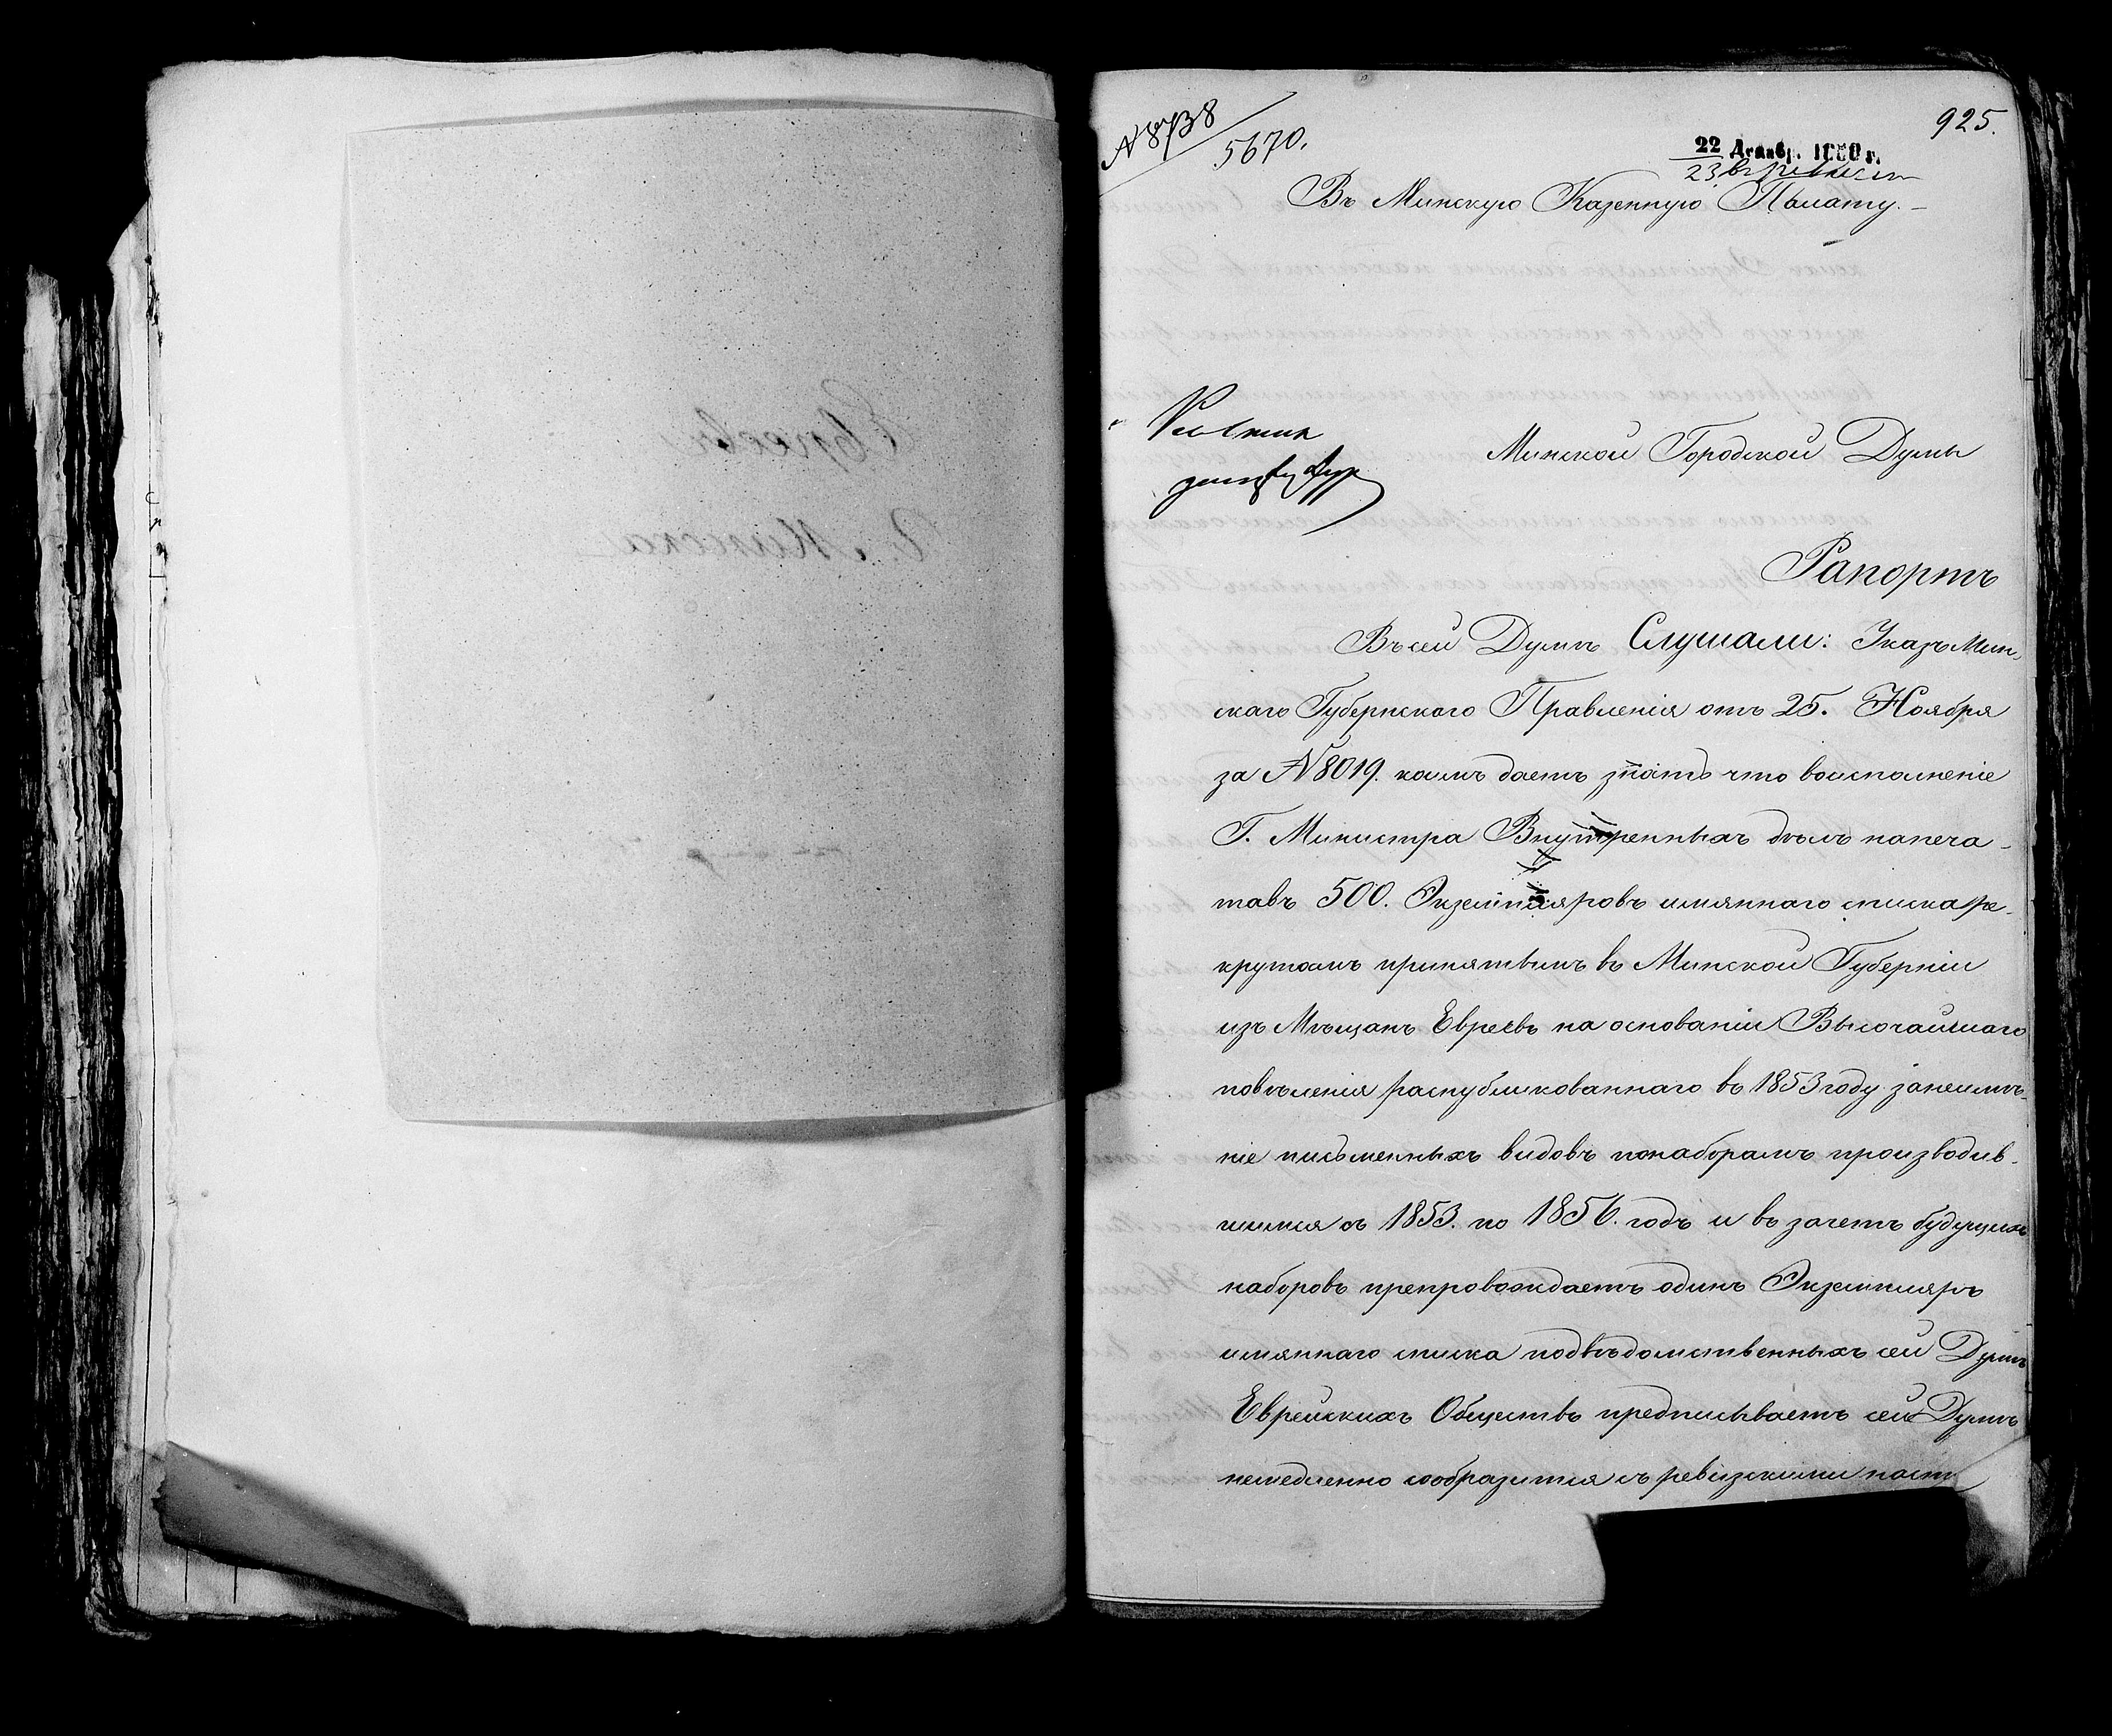 N 8738
5670.
925.
22 Декабр. 1860 г.
23
Въ Минскую Казенную Палату.
Минской Городской Думы
Рапортъ
Въ сей Думѣ Слушали: Указъ Мин-
скаго Губернскаго Правленія отъ 25. Ноября
за N 8019. коимъ даетъ знать что воисполненіе
Г. Министра Внутренныхъ дѣлъ напеча-
тавъ 500. Экземпляровъ имяннаго списка ре-
крутамъ принятымъ въ Минской Губерніи
изъ Мѣщанъ Евреевъ на основаніи Высочайшаго
повѣленія распубликованнаго въ 1853 году занеимѣ-
ніе письменныхъ видовъ понаборамъ производив-
шимся съ 1853. по 1856. годъ и въ зачетъ будущихъ
наборовъ препровождаетъ одинъ Экземпляръ
имяннаго списка подвѣдомственныхъ сей Думѣ
Еврейскихъ Обществъ предписываетъ сей Думѣ
немедленно сообразится съ ревизскими
Евреевъ
Г. Минска